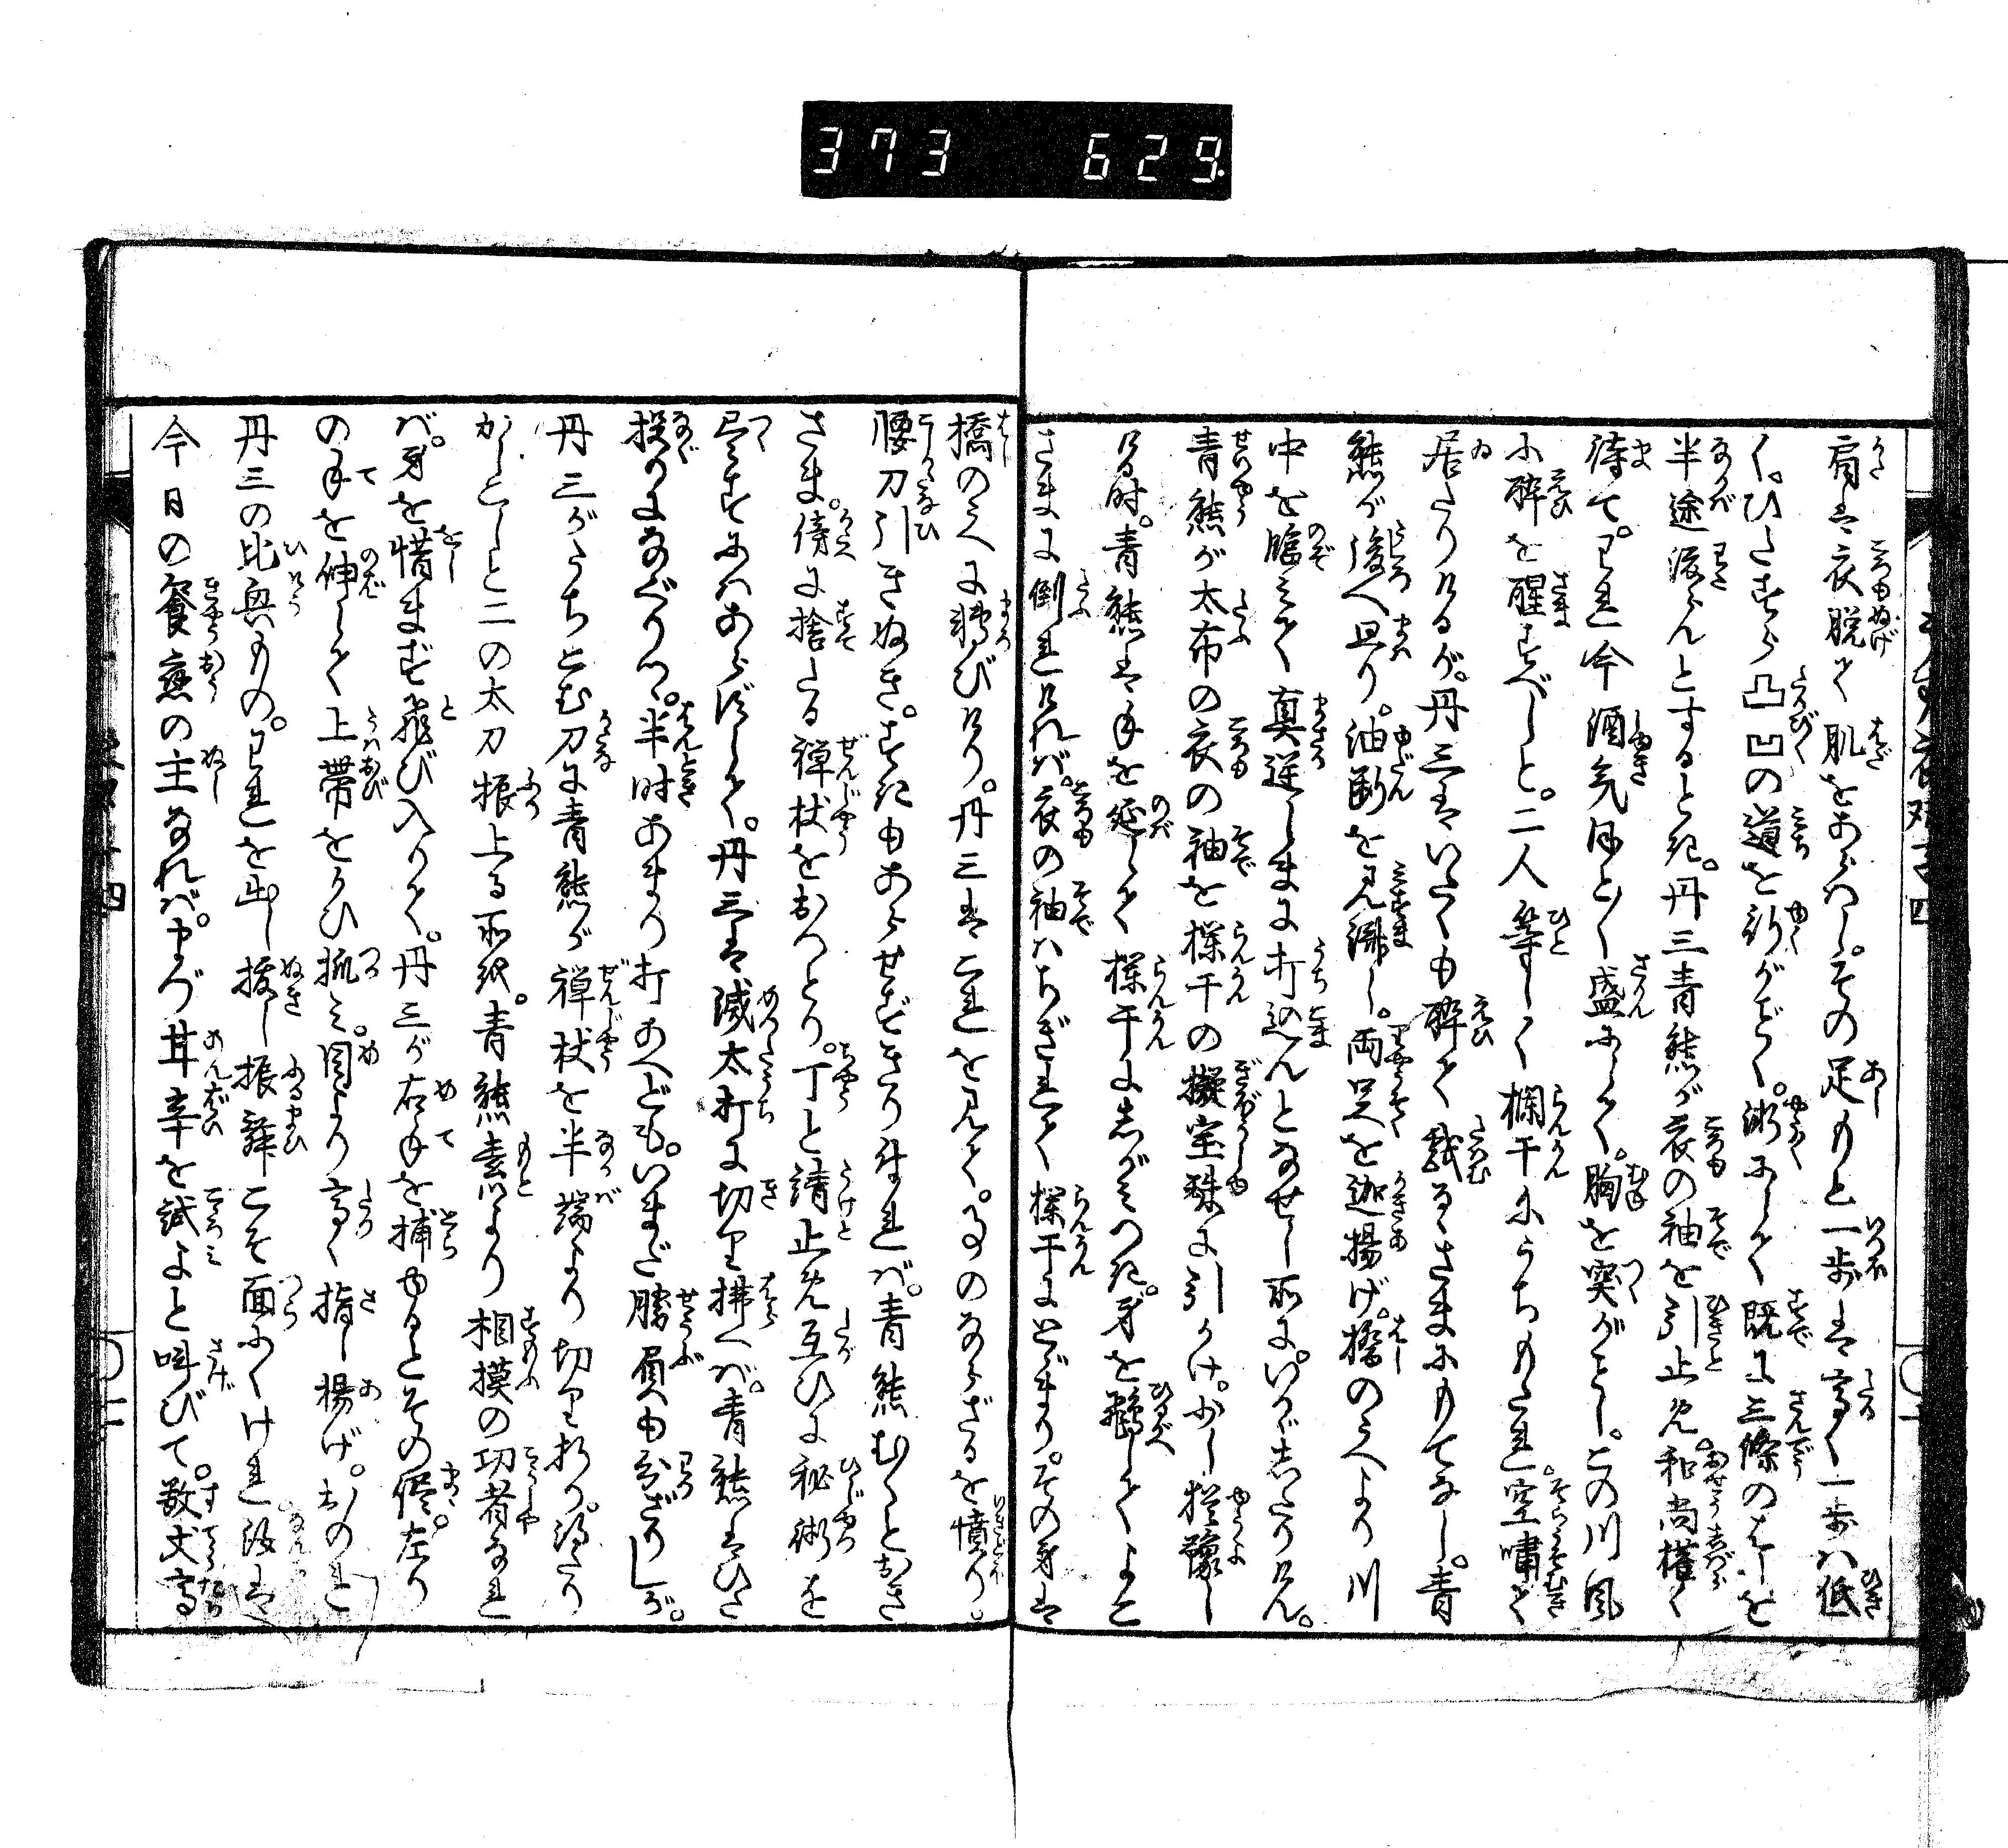 373 629
肩は衣脱て肌をあらはし。その足もと一歩は高く一歩ハ低
く。ひたすら凸凹の道を行がごとく。漸にして既に三條のはしを
半途渡らんとするとき。丹三青熊が衣の袖を引止め。和尚権く
待て。われ今酒気ほとんど盛にして。胸を突がごとし。この川風
に酔を醒すべしと。二人等しく欄干にうちもたれ。空嘯て
居たりけるが。丹三はいたくも酔て戯るゝさまにもてなし。青
熊が後へ廻り。油断を見済し。両足を迦揚げ。橋のうへより川
中を臨みて真逆しまに打込んとなせし所に。いかゞしたりけん。
青熊が太布の衣の袖を欄干の擬宝珠に引かけ。少し猶豫し
ける時。青熊は手を延して欄干にしがみつき。身を飜してよこ
さまに倒れければ。衣の袖ハちぎれて欄干にとゞまり。その身は
橋のうへに轉びけり。丹三はこれを見て。事のならざるを憤り。
腰刀引きぬき。すきもあらせずきり付れば。青熊むくとおき
さま。傍に捨たる禅杖をおつとり。丁と請止め互ひに秘術を
尽すにハあらずして。丹三は滅太打に切り拂へば。青熊はひた
投りになぐりつ。半時あまり打あへども。いまだ勝負も分ざりしが。
丹三がうちこむ刀に青熊が禅杖を半端より切り折り。得たり
かしこしと二の太刀振上る所を。青熊素より相摸の功者なれ
ば。身を惜まず飛び入りて。丹三が右手を捕ゆるとその侭。左り
の手を伸して上帯をつかひ抓み。目より高く指し揚げ。おのれ
丹三の比興もの。われを出し抜し振舞こそ面にくけれ汝は
今日の饗應の主なれば。まづ塩辛を試よと叫びて。数丈高